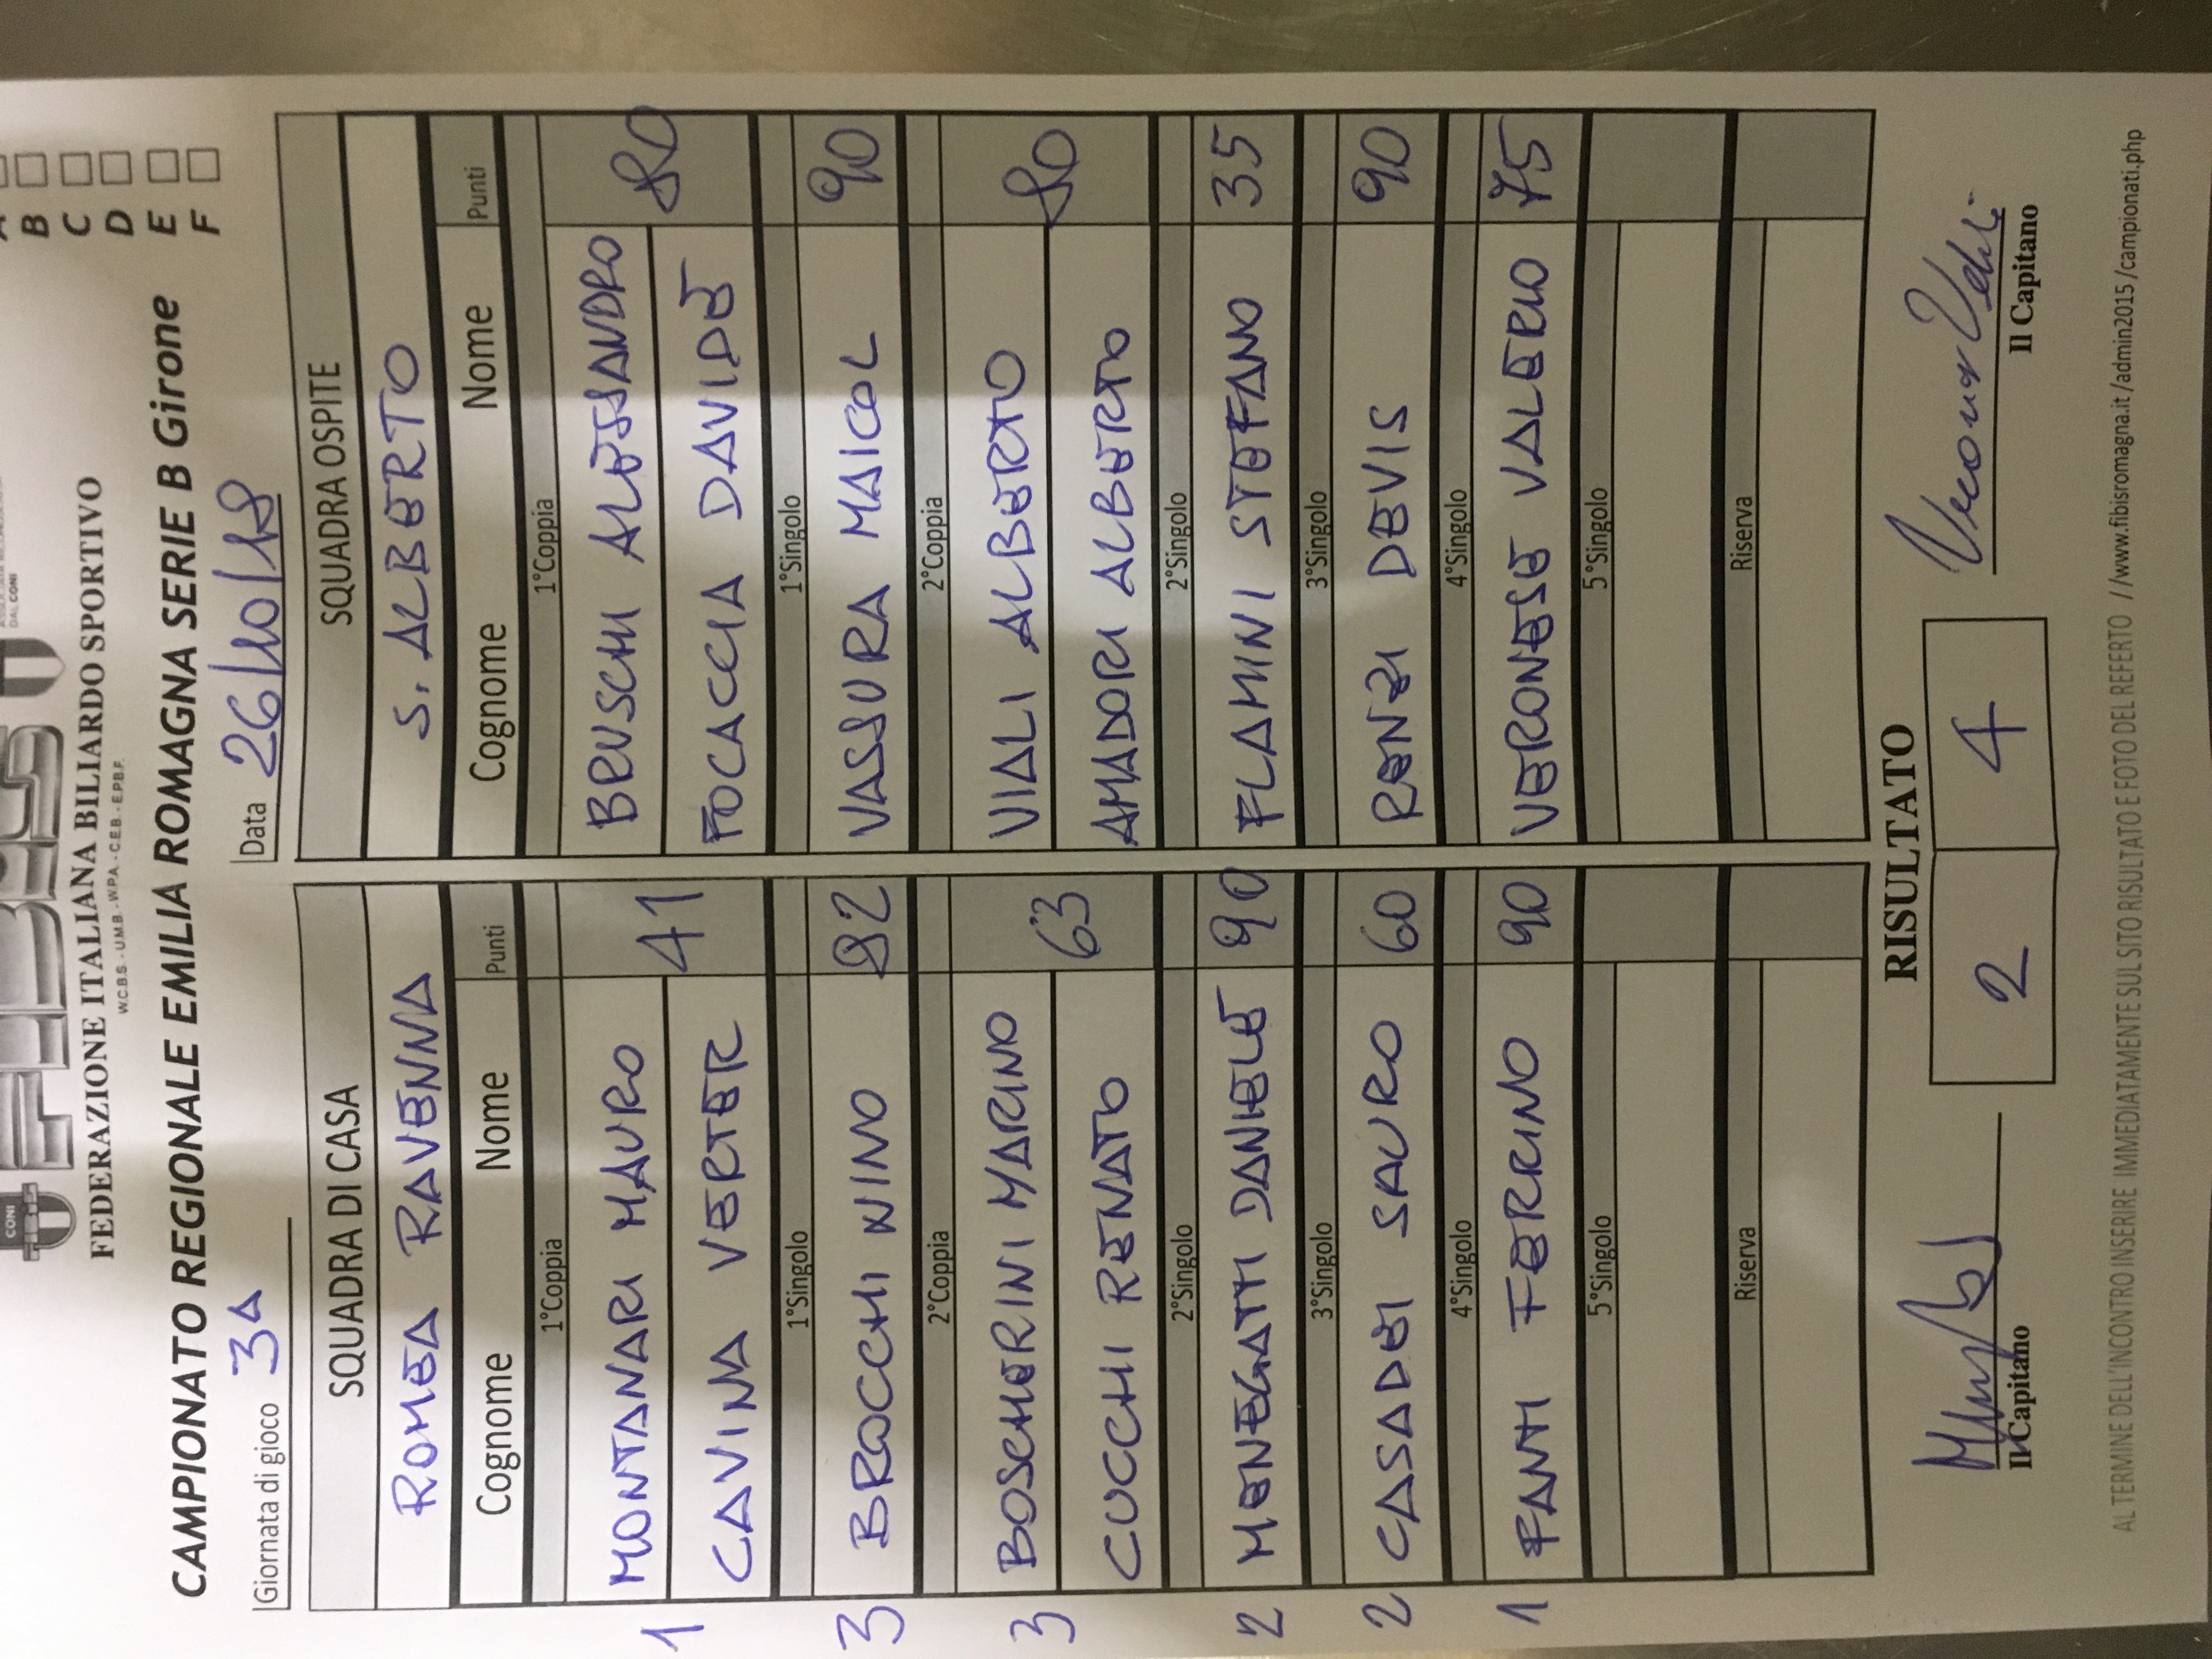 CONI
DAL CONI
FEDERAZIONE ITALIANA BILIARDO SPORTIVO
W.C.B.S. - U.M.B. - W.P.A. - C.E.B. - E.P.B.F.
CAMPIONATO REGIONALE EMILIA ROMAGNA SERIE B Girone
B
C
D
E
F
Giornata di gioco 3A
Data 26/10/18
SQUADRA DI CASA
ROMEA RAVENNA
Cognome Nome Punti
1°Coppia
1 MONTANARI MAURO
CAVINA VERTER 41
1°Singolo
3 BRACCHI NINO 82
2°Coppia
3 BOSCHERINI MARINO
CUCCHI RENATO 63
2°Singolo
2 MENEGATTI DANIELE 90
3°Singolo
2 CASADEI SAURO 60
4°Singolo
1 FANTI FERRINO 90
5°Singolo
Riserva
SQUADRA OSPITE
S. ALBERTO
Cognome Nome Punti
1°Coppia
BRUSCHI ALESSANDRO
FOCACCIA DAVIDE 80
1°Singolo
VASSURA MAICOL 90
2°Coppia
VIALI ALBERTO
AMADORI ALBERTO 80
2°Singolo
FLAMINI STEFANO 35
3°Singolo
RENZI DEVIS 90
4°Singolo
VERONESE VALERIO 75
5°Singolo
Riserva
RISULTATO
2 4
Il Capitano
Il Capitano
AL TERMINE DELL'INCONTRO INSERIRE IMMEDIATAMENTE SUL SITO RISULTATO E FOTO DEL REFERTO //www.fibisromagna.it/admin2015/campionati.php